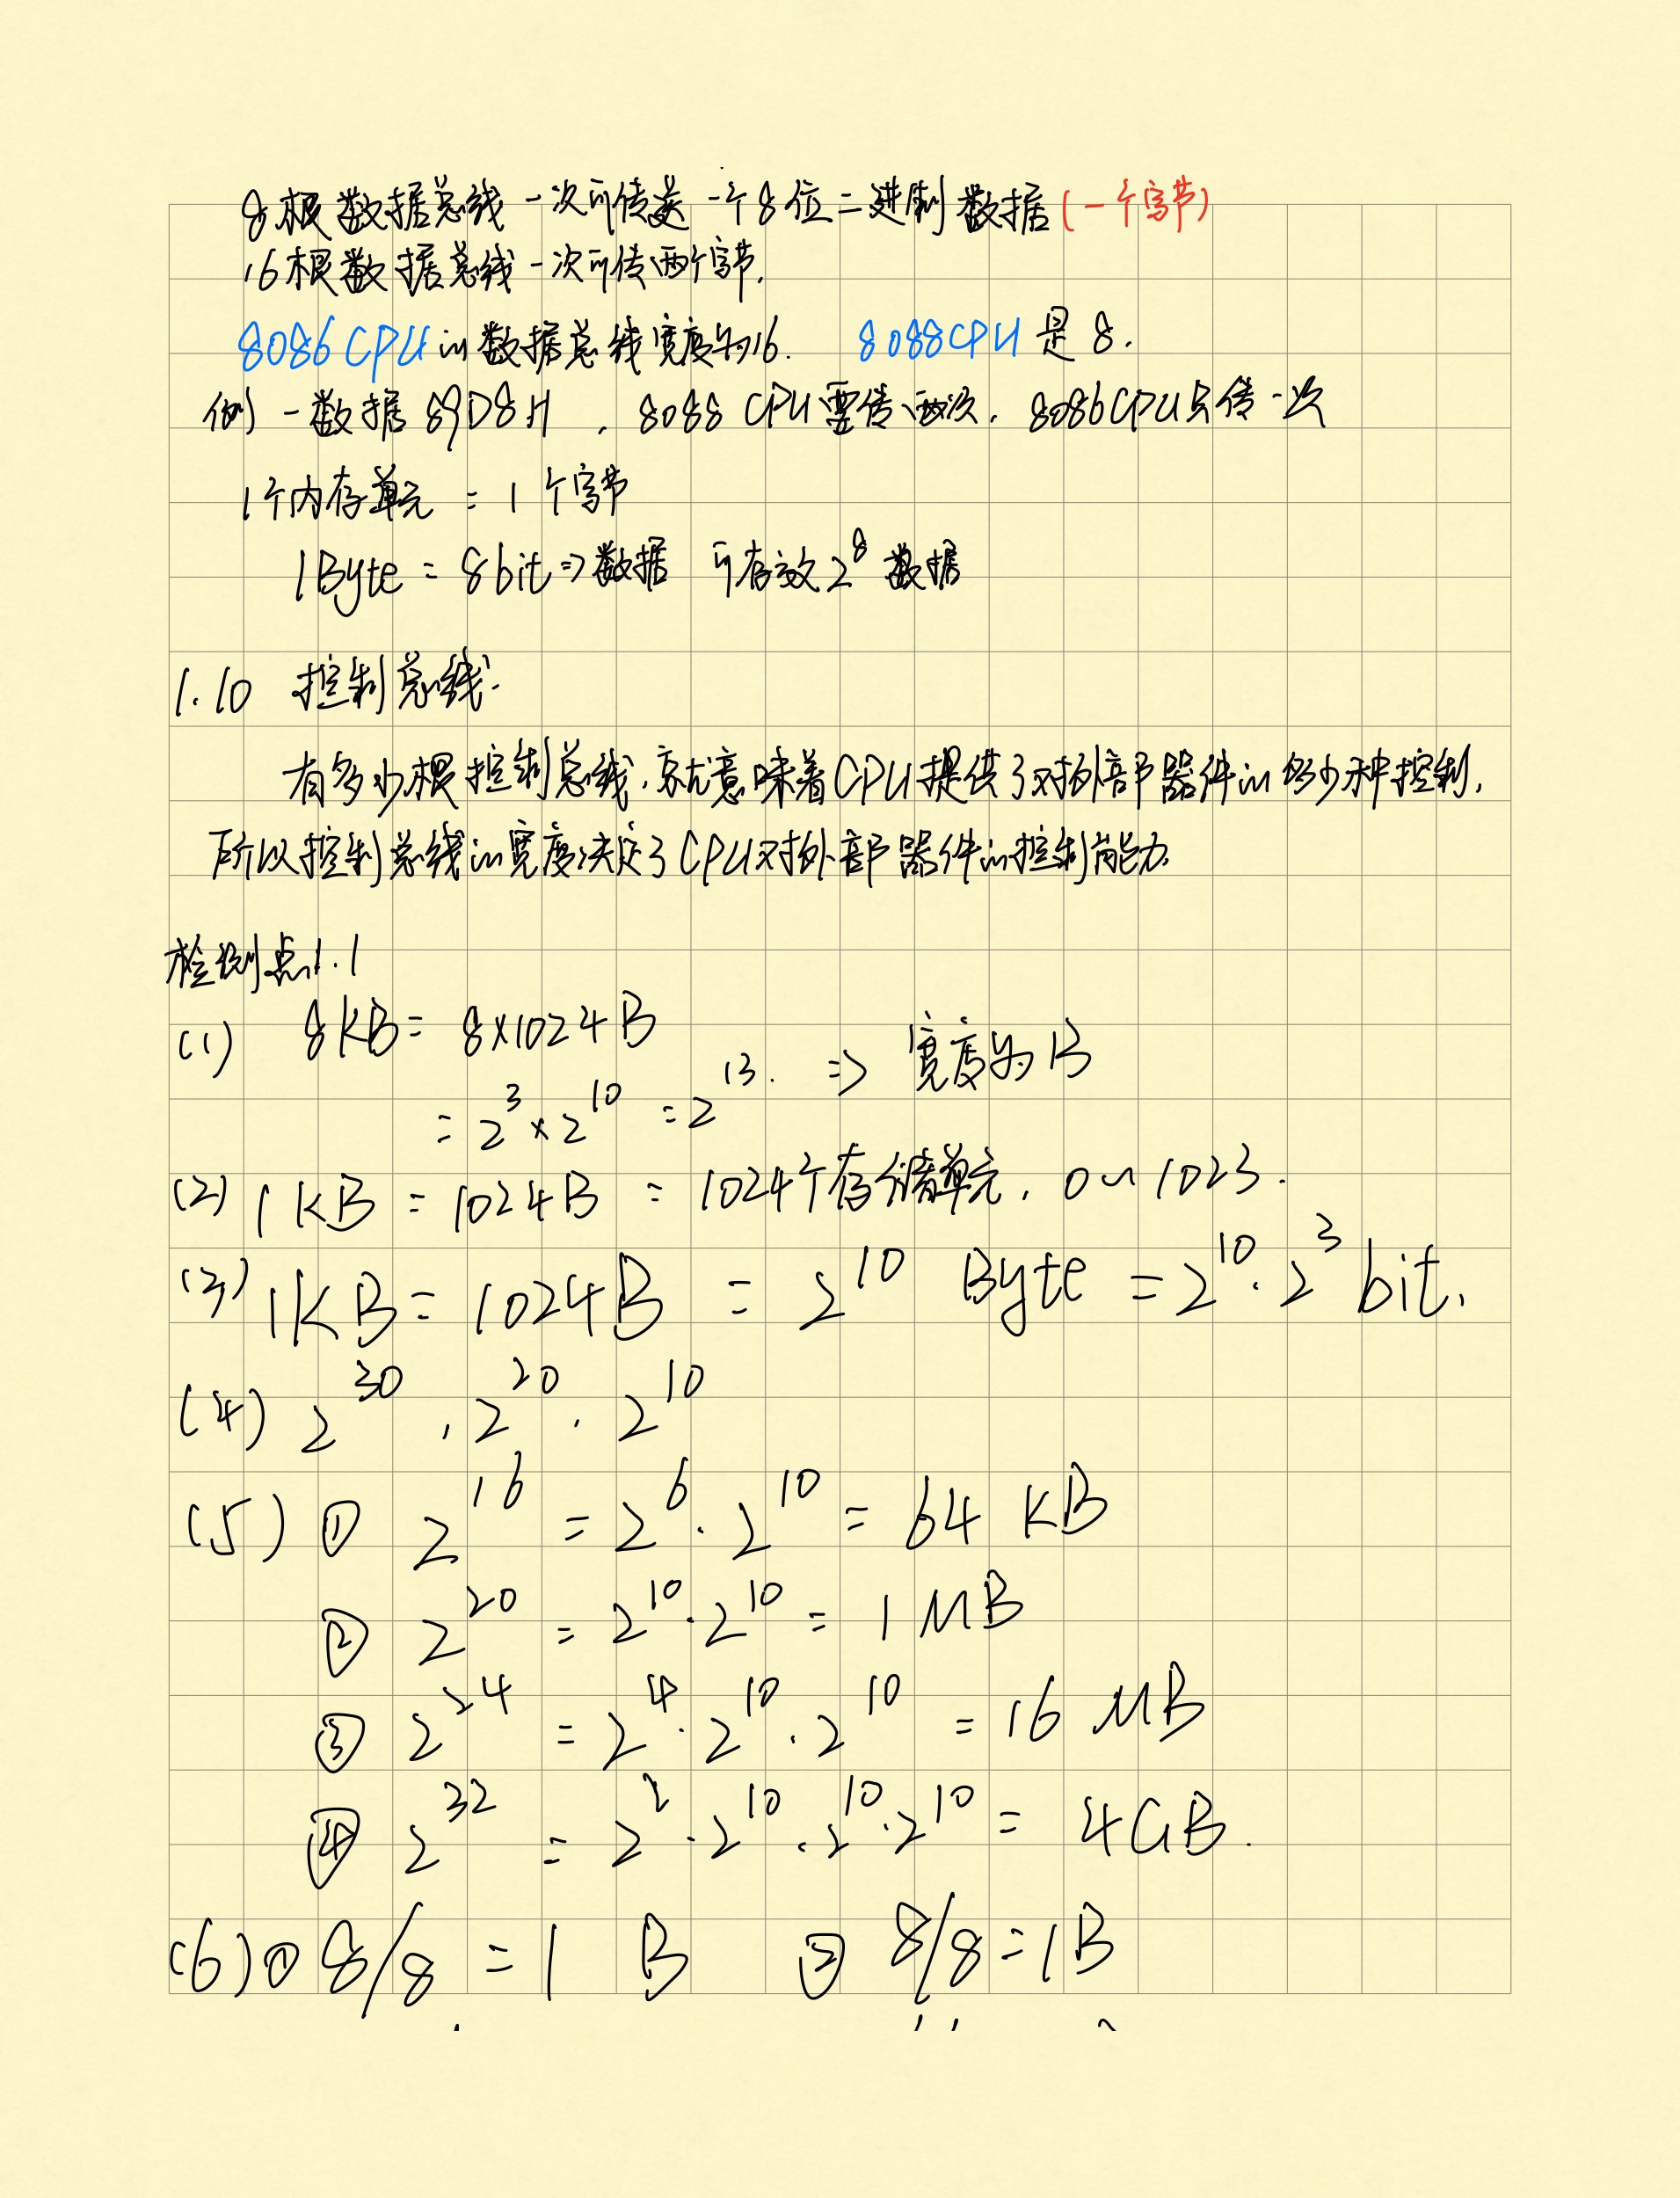 8根数据总线一次可传送一个8位二进制数据(一个字节)
16根数据总线一次可传两个字节.
8086CPU的数据总线宽度为16. 8088CPU是8.
例 一数据89D8H , 8088 CPU需传两次. 8086CPU只传一次
1个内存单元 = 1个字节
1Byte = 8bit => 数据 可存放 2^8 数据
1.10 控制总线.
有多少根控制总线,就意味着CPU提供了对外部器件的多少种控制,
所以控制总线的宽度决定了CPU对外部器件的控制能力.
检测点1.1
(1) 8KB = 8×1024B
= 2^3 × 2^10 = 2^13. => 宽度为13
(2) 1KB = 1024B = 1024个存储单元. 0~1023.
(3) 1KB = 1024B = 2^10 Byte = 2^10·2^3 bit.
(4) 2^30 . 2^20 . 2^10
(5) ① 2^16 = 2^6·2^10 = 64 KB
② 2^20 = 2^10·2^10 = 1 MB
③ 2^24 = 2^4·2^10·2^10 = 16 MB
④ 2^32 = 2^2·2^10·2^10·2^10 = 4GB.
(6) ① 8/8 = 1 B ② 8/8 = 1B